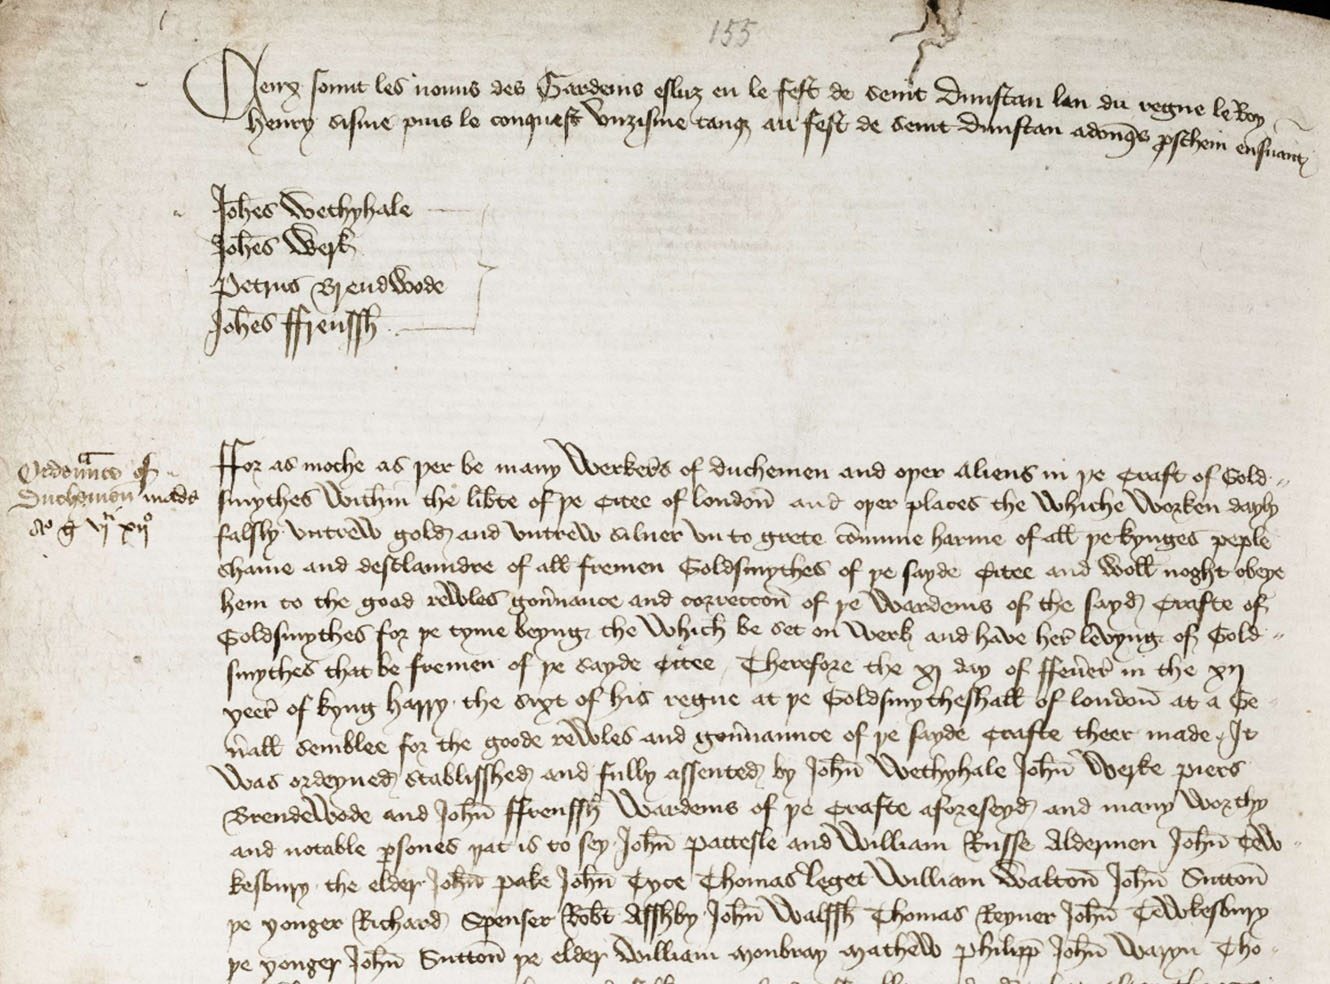 155
Ceux sount les nouns des Gardeins esluz en le fest de seint Dunstan lan du regne le Roy
Henry sisme puis le conquest unzisme tanqe au fest de seint Dunstan adonqes proschein ensuant
Johes Wethyhale
Johes Werk
Petrus Brendwode
Johes ffrenssh
Ordenance of
Duchemen made
Ao H vj xijo
ffor as moche as þer be many Werkers of duchemen and oþer aliens in þe Craft of Gold
smythes Within the libte of þe Citee of london and oþer places the Whiche Worken dayly
falsly untreW gold and untreW siluer un to grete comune harme of all þe kynges peple
shame and desclaundre of all fremen Goldsmythes of þe sayde Citee and Woll noght obeye
hem to the good reWles gouernance and correccon of þe Wardeins of the sayd Crafte of
Goldsmythes for þe tyme beyng the Which be set on Werk and have her levyng of Gold
smythes that be fremen of þe sayde Citee Therefore the xj day of ffeuer in the xij
yeer of kyng Harry the sixt of his regne at þe Goldsmytheshall of london at a Ge
nall semblee for the goode reWles and gouernaunce of þe sayde Crafte theer made It
Was ordeyned stablisshed and fully assented by John Wethyhale John Werke Piers
BrendeWode and John ffrenssh Wardeins of þe Crafte aforeseyd and many Worthy
and notable persones þat is to sey John Pattesle and William Russe Aldermen John TeW
kesbury the elder John Pake John Tyce Thomas Leget William Walton John Sutton
þe yonger Richard Spenser Robt Asshby John Walssh Thomas Reyner John TeWkesbury
þe yonger John Sutton þe elder William Monbray MatheW Philipp John Waryn Tho